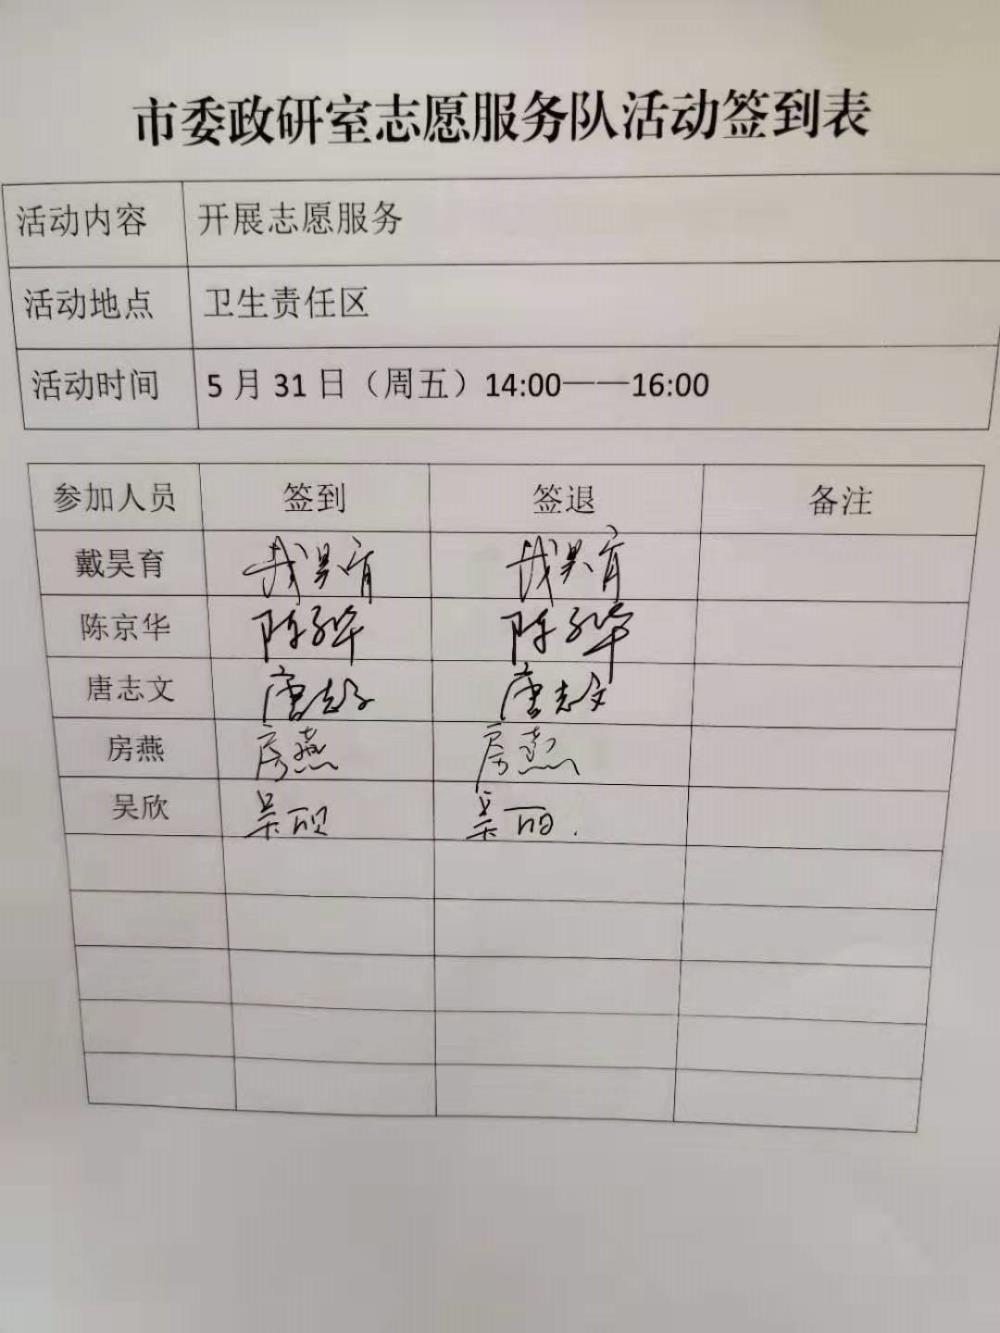 市委政研室志愿服务队活动签到表
活动内容 开展志愿服务
活动地点 卫生责任区
活动时间 5月31日（周五）14:00——16:00
参加人员 签到 签退 备注
戴昊育 戴昊育 戴昊育
陈京华 陈京华 陈京华
唐志文 唐志文 唐志文
房燕 房燕 房燕
吴欣 吴 吴